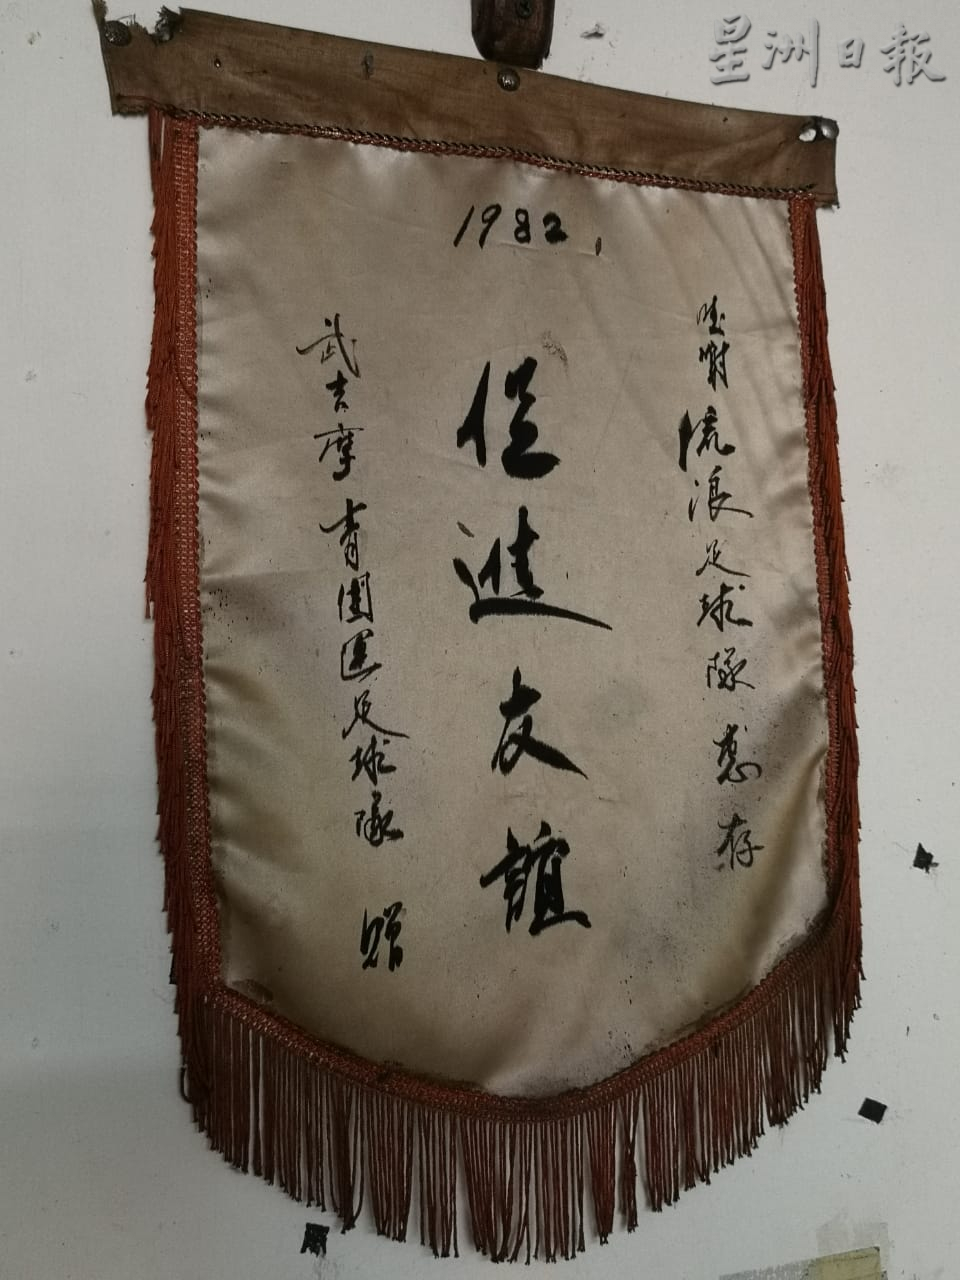 星洲日報
1982.
流浪足球隊 惠存
促進友誼
武吉摩青團運足球隊 贈